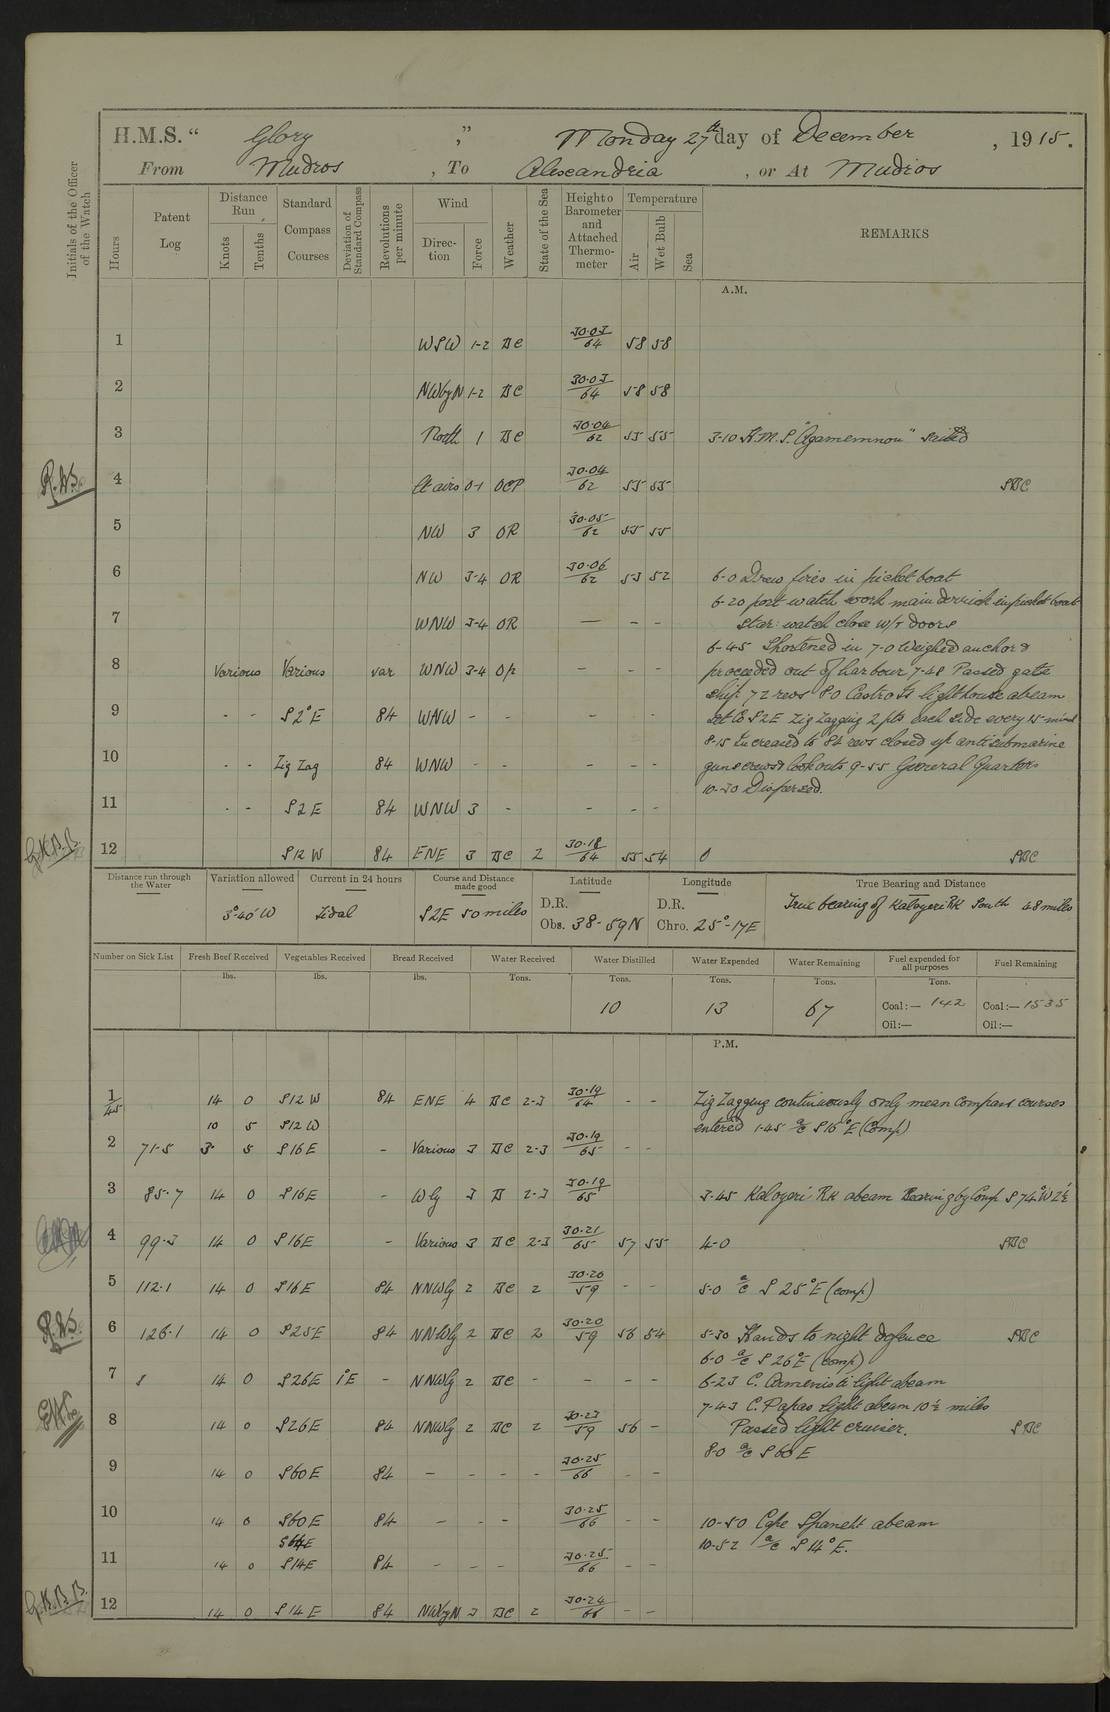 H.M.S. “ Glory ” Monday 27th day of December , 1915.
From Mudros , To Alexandria , or At Mudros
Initials of the Officer of the Watch
Hours
Patent Log
Distance Run
Knots
Tenths
Standard Compass Courses
Deviation of Standard Compass
Revolutions per minute
Wind
Direc-tion
Force
Weather
State of the Sea
Height o Barometer and Attached Thermo-meter
Temperature
Air
Wet Bulb
Sea
REMARKS
A.M.
1 WSW 1-2 BC 30.03/64 58 58
2 NWbyN 1-2 BC 30.03/64 58 58
3 North 1 BC 30.04/62 55 55 3-10 H.M.S. "Agamemnon" sailed
R.W.
4 Lt airs 0-1 OCP 30.04/62 55 55 SBC
5 NW 3 OR 30.05/62 55 55
6 NW 3-4 OR 30.06/62 53 52 6-0 Drew fires in picket boat
6-20 port watch work main derrick in picket boat
7 WNW 3-4 OR — - - Star: watch close W/T doors
6-45 Shortened in 7-0 Weighed anchor &
8 Various Various var WNW 3-4 Op - - - proceeded out of harbour 7-48 Passed gate
ship 72 revs 8-0 Castro Is lighthouse abeam
9 - - S2°E 84 WNW - - - set Co S2E Zig Zagging 2 pts each side every 15 mins
8-15 Increased to 84 revs closed up antisubmarine
10 - - Zig Zag 84 WNW - - - - - guns crews & lookouts 9-55 General Quarters
10-30 Dispersed.
11 - - S2E 84 WNW 3 - - - -
G.K.B.B.
12 S12W 84 ENE 3 BC 2 30.18/64 55 54 0 SBC
Distance run through the Water
Variation allowed 3°-40' W
Current in 24 hours Tidal
Course and Distance made good S2E 50 miles
Latitude D.R. Obs. 38-59N
Longitude D.R. Chro. 25°-17E
True Bearing and Distance True bearing of Kaloyeri RK South 48 miles
Number on Sick List
Fresh Beef Received lbs.
Vegetables Received lbs.
Bread Received lbs.
Water Received Tons.
Water Distilled Tons. 10
Water Expended Tons. 13
Water Remaining Tons. 67
Fuel expended for all purposes Tons. Coal:— 142 Oil:—
Fuel Remaining Coal:— 1535 Oil:—
P.M.
1/45 14 0 S12W 84 ENE 4 BC 2-3 30.19/64 - - Zig Zagging continuously only mean compass courses
10 5 S12W entered 1-45 a/c S16°E (Comp)
2 71.5 3. 5 S16E - Various 3 BC 2-3 30.19/65 - -
3 85.7 14 0 S16E - Wly 3 B 2-3 30.19/65 3-45 Kaloyeri RK abeam Bearing by Comp S74°W 2½'
4 99.3 14 0 S16E - Various 3 BC 2-3 30.21/65 57 55 4-0 SBC
5 112.1 14 0 S16E 84 NNWly 2 BC 2 30.20/59 - - 5-0 a/c S 25°E (comp)
R.W.
6 126.1 14 0 S25E 84 NNWly 2 BC 2 30.20/59 56 54 5-30 Hands to night defence SBC
6-0 a/c S26°E (comp)
7 14 0 S26E 1°E - NNWly 2 BC - - - - 6-23 C. Armenisti light abeam
7-43 C. Papas light abeam 10½ miles
8 14 0 S26E 84 NNWly 2 BC 2 30.23/59 56 - Passed light cruiser. SBC
8-0 a/c S60E
9 14 0 S60E 84 - - - - 30.25/66 - -
10 14 0 S60E 84 - - - 30.25/66 - - 10-50 Cape abeam
S14E 10-52 a/c S 14°E.
11 14 0 S14E 84 - - - 30.25/66 - -
G.K.B.B.
12 14 0 S14E 84 NWbyN 3 BC 2 30.24/66 - -